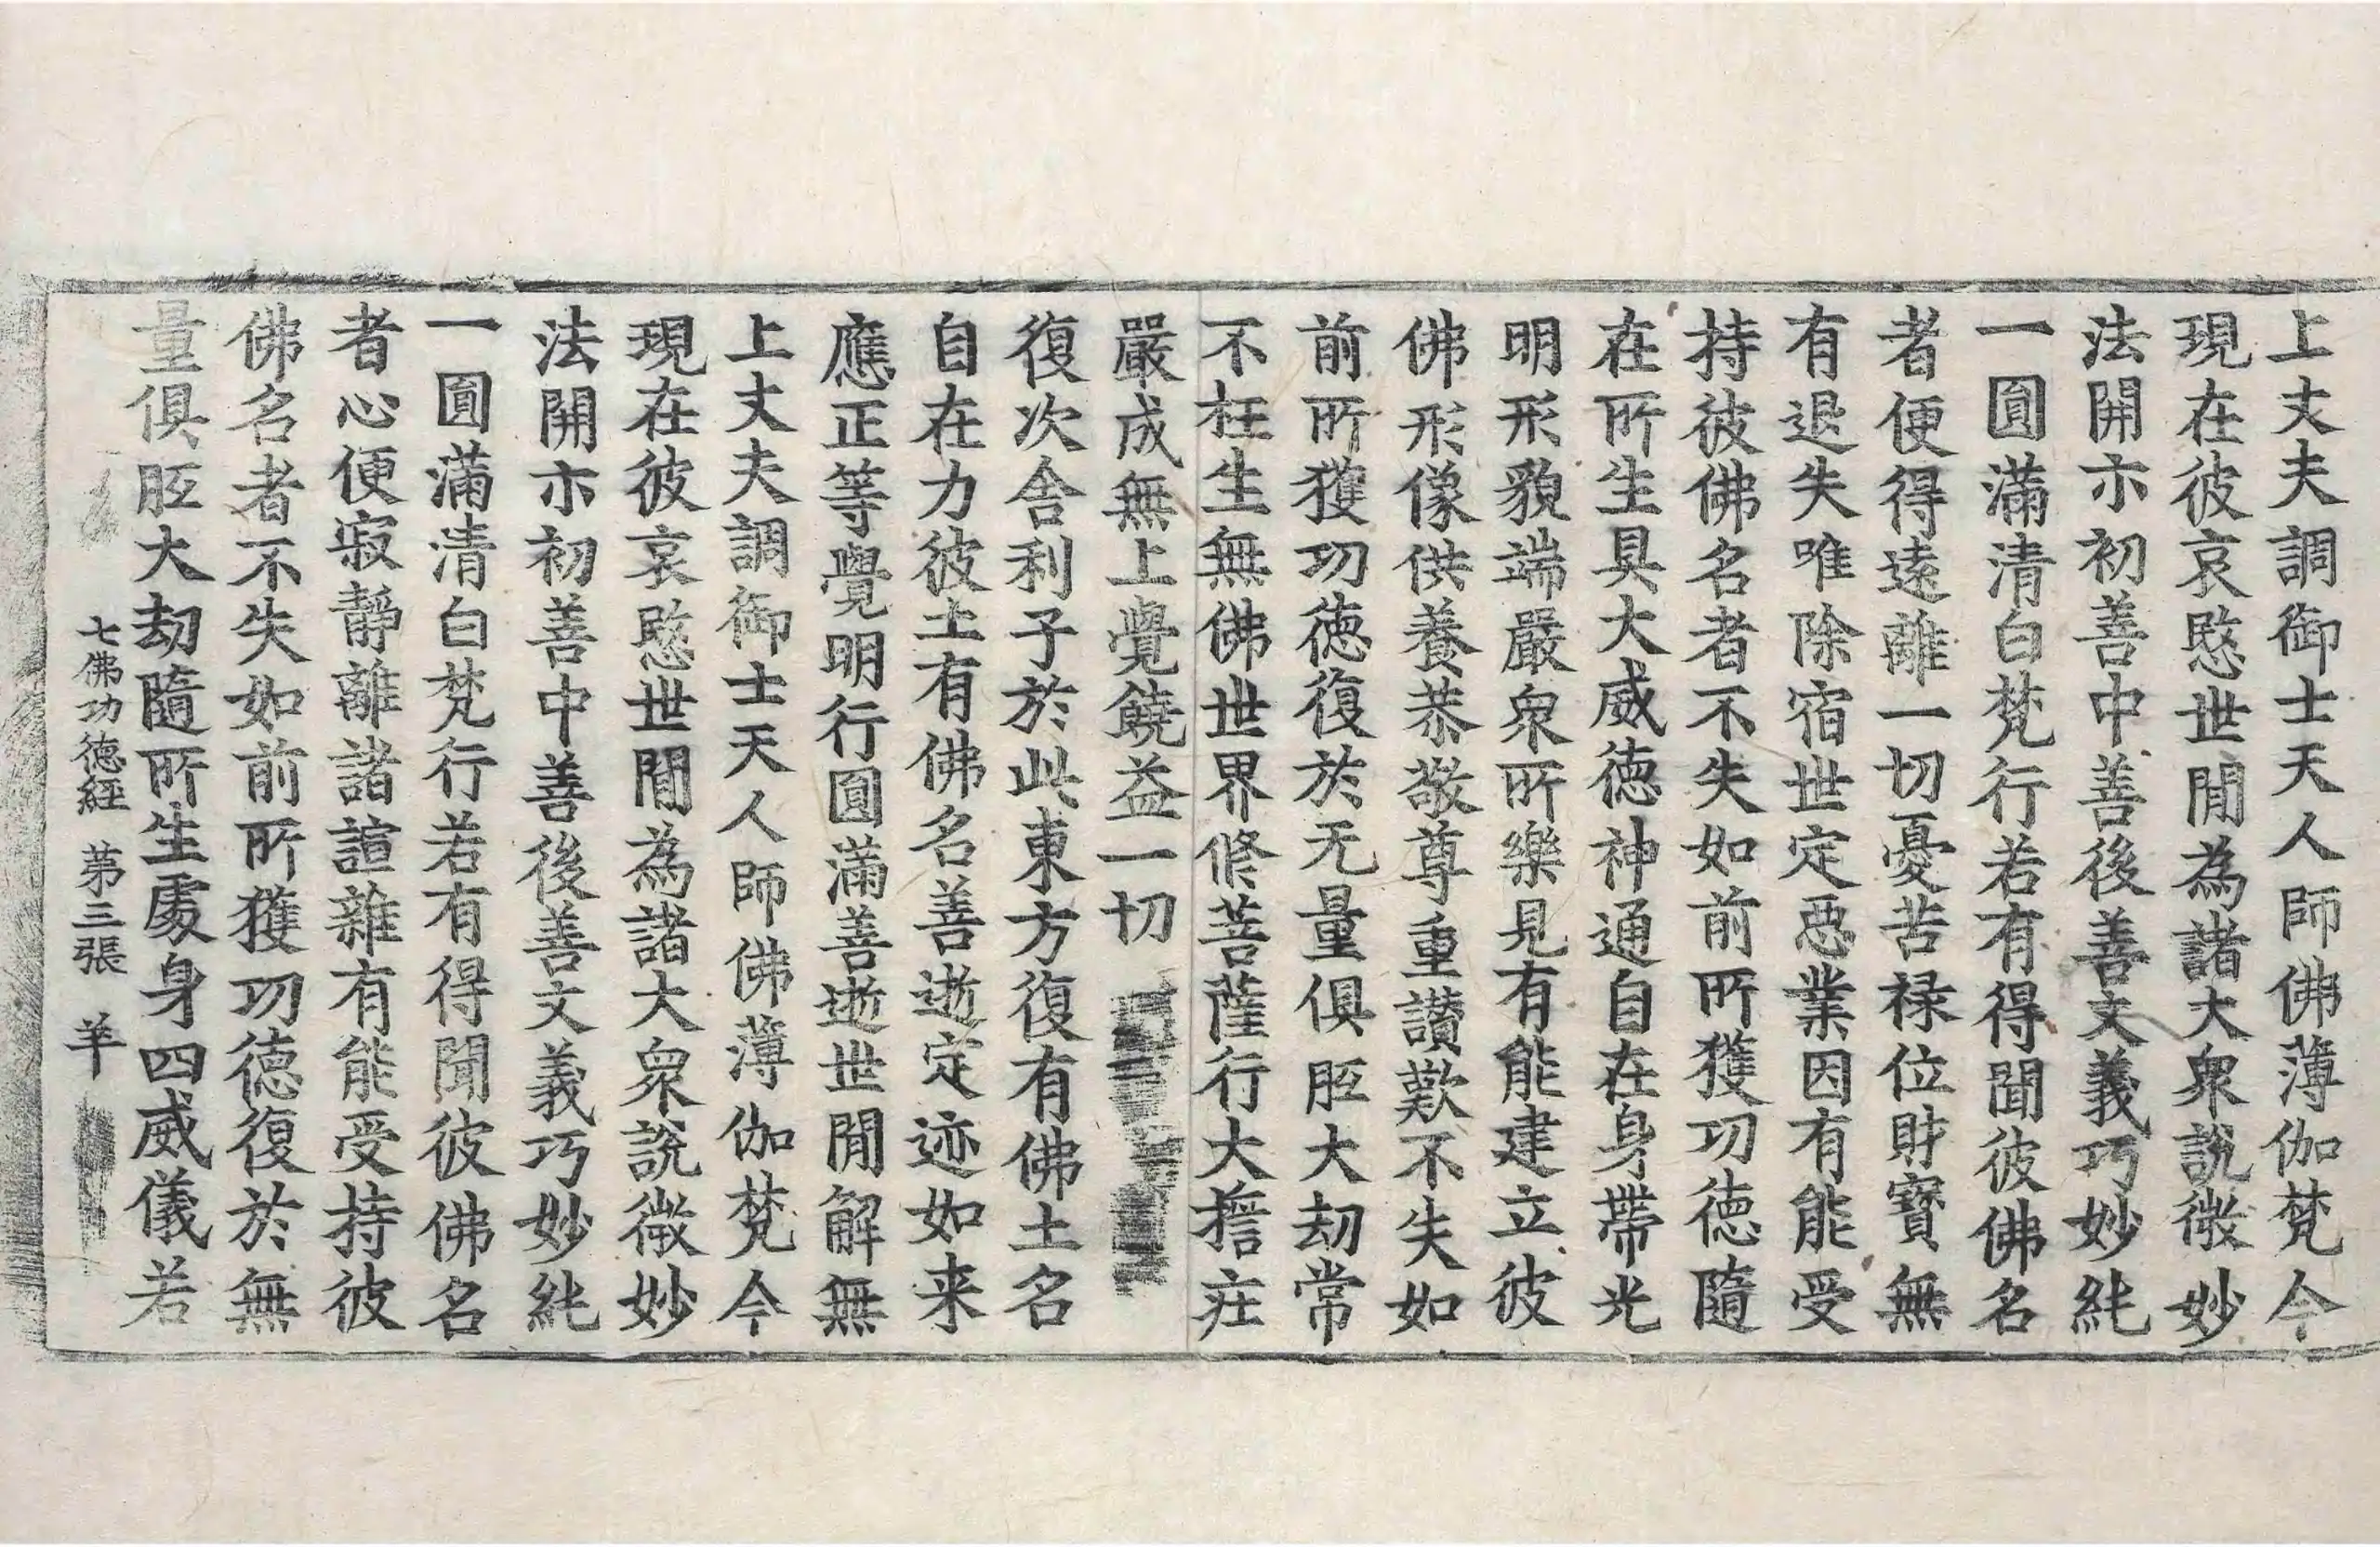 上丈夫調御士天人師佛薄伽梵今
現在彼哀愍世閒為諸大衆說微妙
法開示初善中善後善文義巧妙純
一圓滿清白梵行若有得聞彼佛名
者便得遠離一切憂苦禄位財寶無
有退失唯除宿世定惡業因有能受
持彼佛名者不失如前所獲功德隨
在所生具大威德神通自在身帶光
明形貌端嚴衆所樂見有能建立彼
佛形像供養恭敬尊重讚歎不失如
前所獲功德復於无量俱胝大劫常
不枉生無佛世界修菩薩行大擔莊
嚴成無上覺饒益一切
復次舍利子於此東方復有佛土名
自在力彼土有佛名善逝定迹如来
應正等覺明行圓滿善逝世閒解無
上丈夫調御士天人師佛薄伽梵今
現在彼哀愍世閒為諸大衆說微妙
法開示初善中善後善文義巧妙純
一圓滿清白梵行若有得聞彼佛名
者心便寂靜離諸諠雜有能受持彼
佛名者不失如前所獲功德復於無
量俱胝大劫隨所生處身四威儀若
七佛功德經 第三張 羊